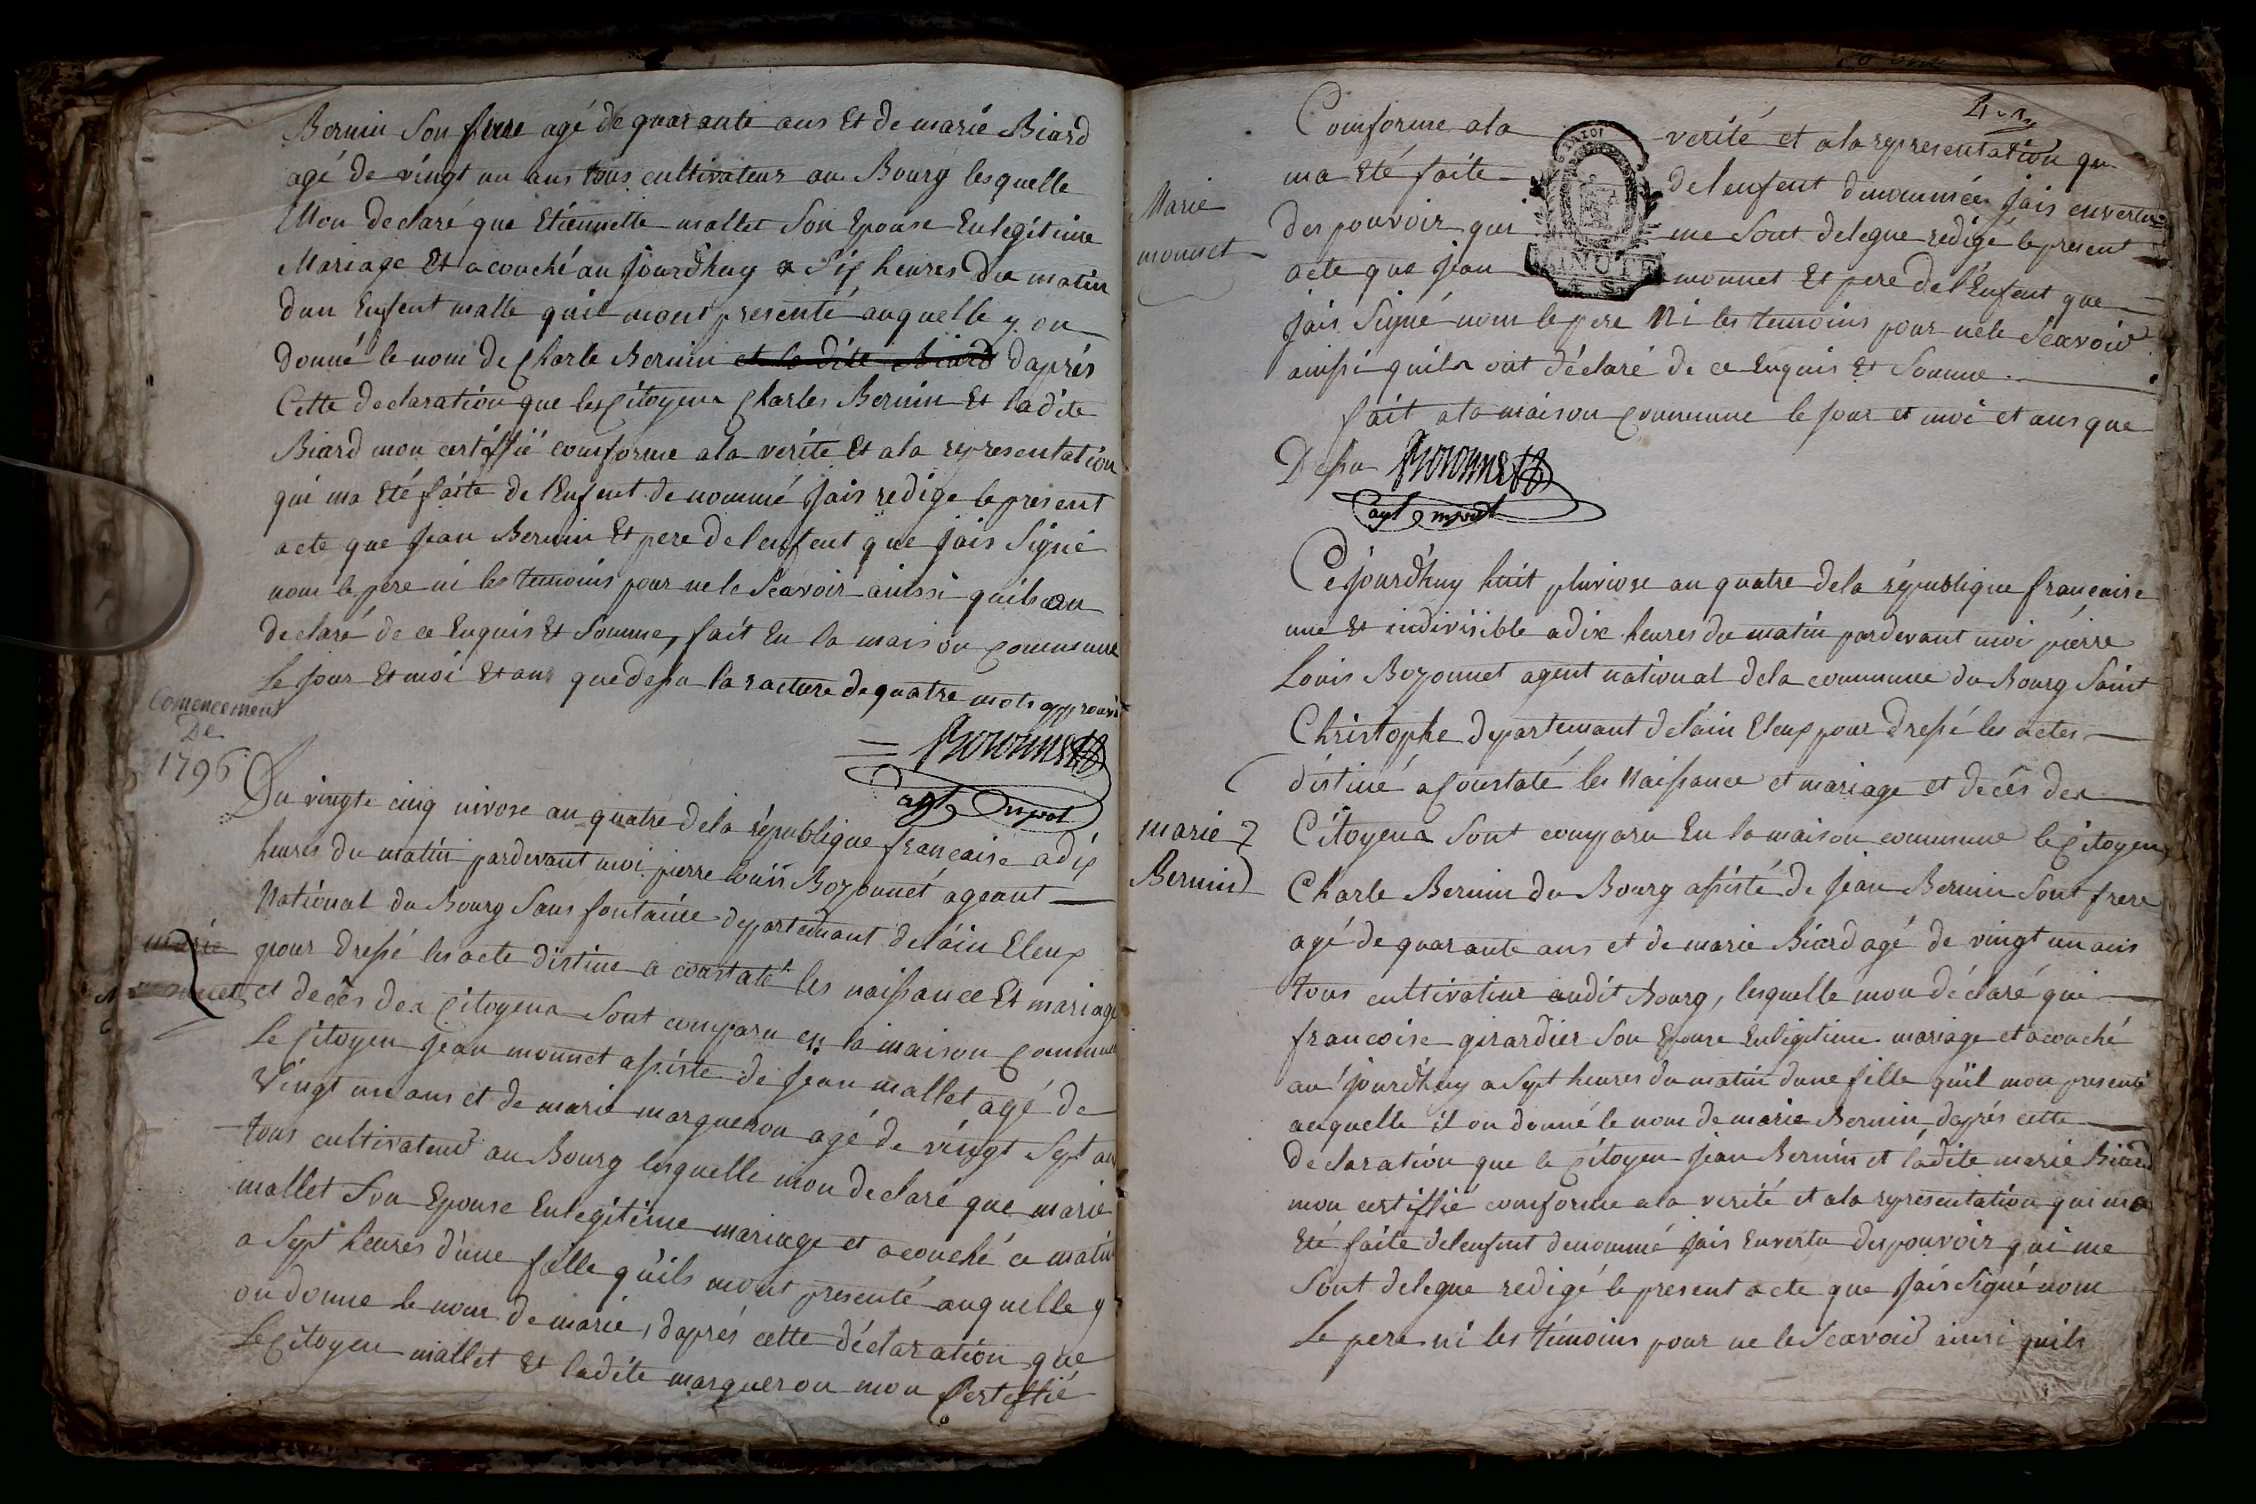 Bernin Son frere agé de quarante ans Et de marie Biard
agé de vingt un ans tous cultivateur au Bourg lesquelle
Mon declaré que Etiennette mallet Son Epouse Enlegitime
Mariage Et acouché au jourdhuy a Six heures du matin
dun Enfent malle quil mont presenté auquelle y on
donné le nom de Charle Bernin et la dite Biard daprés
Cette declaration que les Citoyens Charles Bernin Et ladite
Biard mon certiffié comforme ala verité Et ala representation
qui ma Eté faite de lEnfent denommé jais redige le present
acte que Jean Bernin Et pere delenfent que jais Signé
nom le pere ni les temoins pour ne le Scavoir ainssi quils on
declaré de ce Enquis Et Somme, fait En la maison commune
Le jour Et moi Et ans que desu la racture de quatre mots approuvé
Bozonnet
agt
Comencement
De
1796
Du vingte cinq nivose an quatre dela république francaise adix
heures du matin pardevant moi pierre louis Bozonnet ageant
National du Bourg Sans fontaine departemant delain Eleux
pour dressé les acte distine a constaté les naissance Et mariage
et decés des Citoyens Sont comparu en la maison Commune
Le Citoyen Jean monnet assisté de Jean mallet agé de
vingt un ans et de marie margueron agé de vingt Sept an
tous cultivateur au Bourg lesquelle mon declaré que marie
mallet Son Epouse Enlegitime mariage et acouché ce matin
a Sept heures d'une fille quils mont presenté auquelle y
on donne le nom de marie, daprés cette déclaration que
Le Citoyen mallet Et ladite margueron mon Certiffié
marie
monnet
41
Marie
monnet
Comforme ala verité et ala representation qui
ma Eté faite delenfent denommée jais envertu
des pouvoir qui me Sont delegue redigé le present
acte que Jean monnet Et pere del'Enfent que
jais Signé nom le pere Ni les temoins pour nele Scavoir
ainssi quils ont déclaré de ce Enquis Et Somme
fait ala maison commune le jour et moi et ans que
Desu Bozonnet
agt
Cejourdhuy huit pluviose an quatre dela république francaise
une Et indivisible adix heures du matin pardevant moi piérre
Louis Bozonnet agent national dela commune du Bourg Saint
Christophe departemant delain Eleux pour dressé les actes
déstiné a Constaté les Naissance et mariage et decés des
Citoyens Sont comparu En la maison commune le Citoyen
Charle Bernin du Bourg assisté de Jean Bernin Sont frere
agé de quarante ans et de marie Biard agé de vingt un ans
tous cultivateur audit Bourg, lesquelle mon déclaré que
francoise girardier Son Epouse Enlegitime mariage et acouché
au jourdhuy a Sept heures du matin dune fille quil mon presenté
auquelle il on donné le nom de marie Bernin daprés cette
declaration que le Citoyen Jean Bernin et ladite marie Biard
mon certiffié comforme ala verité et ala representation qui ma
Eté faite delenfent denommé jais Envertu des pouvoir qui me
Sont delegue redigé le present acte que jais Signé nom
Le pere ni les temoins pour ne le Scavoir ainsi quils
marie
Bernin